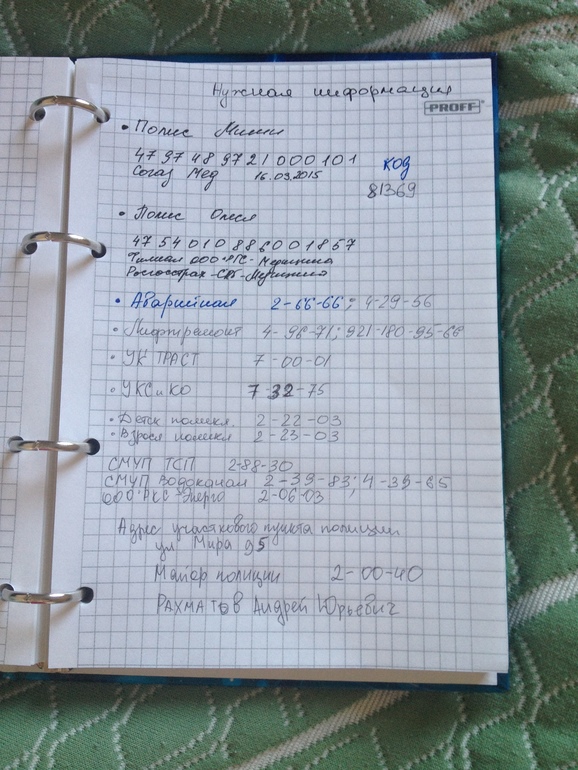 Нужная информация
PROFF
• Полис Миши
4797489721000101
Согаз Мед 16.03.2015
код
81369
• Полис Олеся
4754010886001857
Филиал ООО "РГС-Медицина
Росгосстрах-СПб-Медицина
• Аварийная 2-66-66; 4-29-56
• Лифтремонт 4-96-71; 921-180-95-66
• УК ТРАСТ 7-00-01
• УКС и КО 7-32-75
• Детск поликл. 2-22-03
• Взросл поликл 2-23-03
СМУП ТСП 2-88-30
СМУП Водоканал 2-39-83; 4-39-65
ООО "РКС-Энерго 2-06-03
Адрес участкового пункта полиции
ул Мира 95
Майор полиции 2-00-40
РАХМАТОВ Андрей Юрьевич